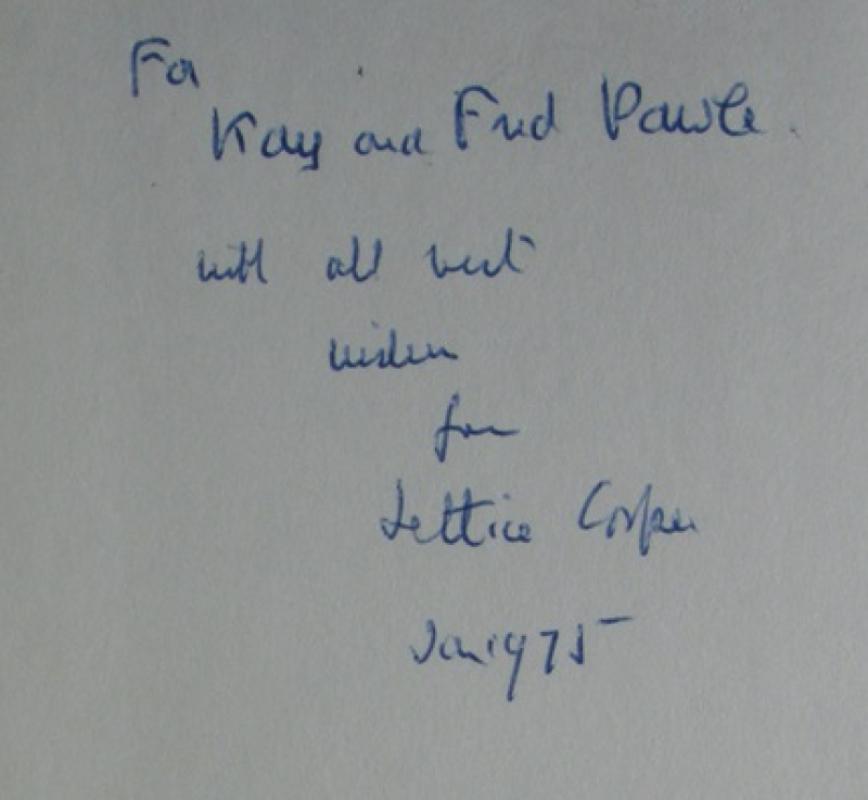 For
Kay and Fred Pawle.
with all best
wishes
from
Lettice Cooper
Jan 1975